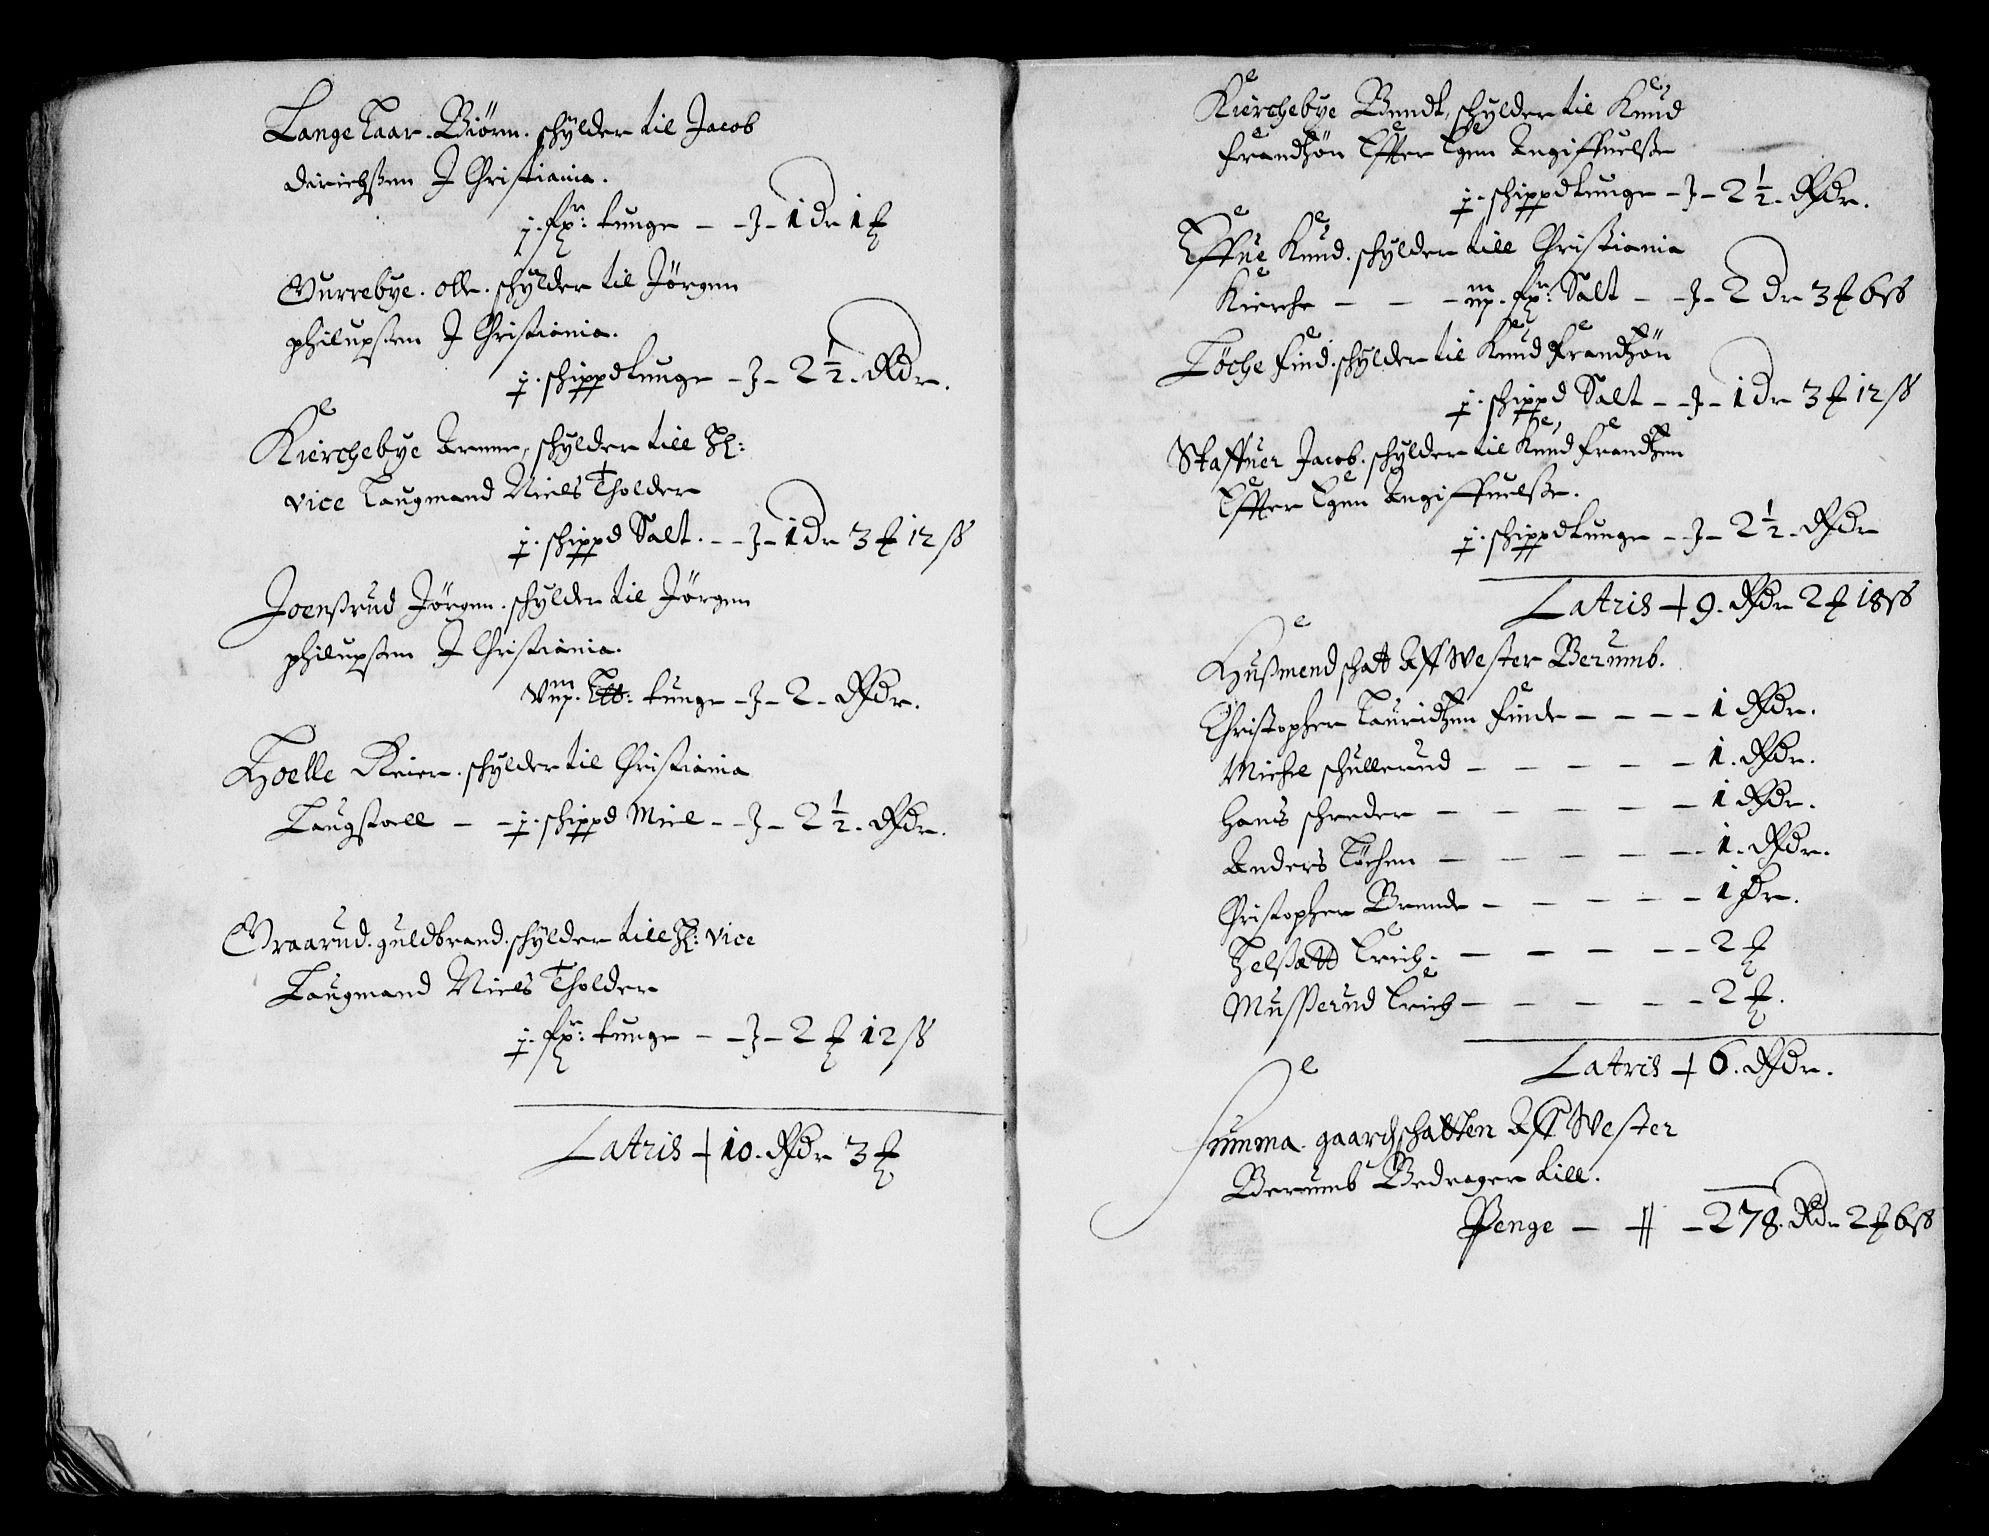 Lange Taar. Biørn. schylder til Jacob
dirichsen J Christiania.
j. fr: tunge - - J - 1 dr 1 ℔
Burrebye. olle. schylder til Jørgen
philupsen J Christiania.
j. schippd tunge - J - 2½. Rdr.
Kierchebye Arnne, schylder till Hr:
vice Laugmand Niels Tholder
j. schippd Salt. - - J - 1 dr 3 ℔ 12 ß
Joensrud Jørgen. schylder til Jørgen
philupsen J Christiania.
tunge - J - 2 - Rdr.
Hoelle Reier. schylder til Christiania
Laugstoell - - j. schippd Miel - - J - 2½. Rdr.
Graarud. guldbrand. schylder till Hr: vice
Laugmand Niels Tholder
j. fr: tunge - - J - 2 ℔ 12 ß
Latris + 10. Rdr 3 ℔
Kierchebye Bendt, schylder til Knud
frandzøn Effter Egen Angiffuelse
j. schippd tunge - J - 2½. Rdr.
Effue Knud. schylder till Christiania
Kierche - - - fr: Salt - - J - 2 dr 3 ℔ 6 ß
Tøche find. schylder til Knud frandzøn
j. schippd Salt - - J - 1 dr 3 ℔ 12 ß
Staffuer Jacob. schylder til Knud frandzen
Effter Egen Angiffuelse.
j. schippd tunge - J - 2½. Rdr
Latris + 9. Rdr 2 ℔ 18 ß
Husmend schatt Aff Wester Berumb.
Christopher Lauridzen finde - - - - 1 Rdr.
Michel schullerud - - - - - 1. Rdr.
Hans schreder - - - - - - 1 Rdr.
Anders Tøchen - - - - - - 1. Rdr.
Christopher Brende - - - - - 1 dr.
Erich. - - - - - 2 ℔
Musserud Erich - - - - - 2 ℔.
Latris + 6. Rdr.
Summa. gaardschatten Aff Wester
Berumb Bedrager till.
Penge - ⧺ - 278. Rdr 2 ℔ 6 ß